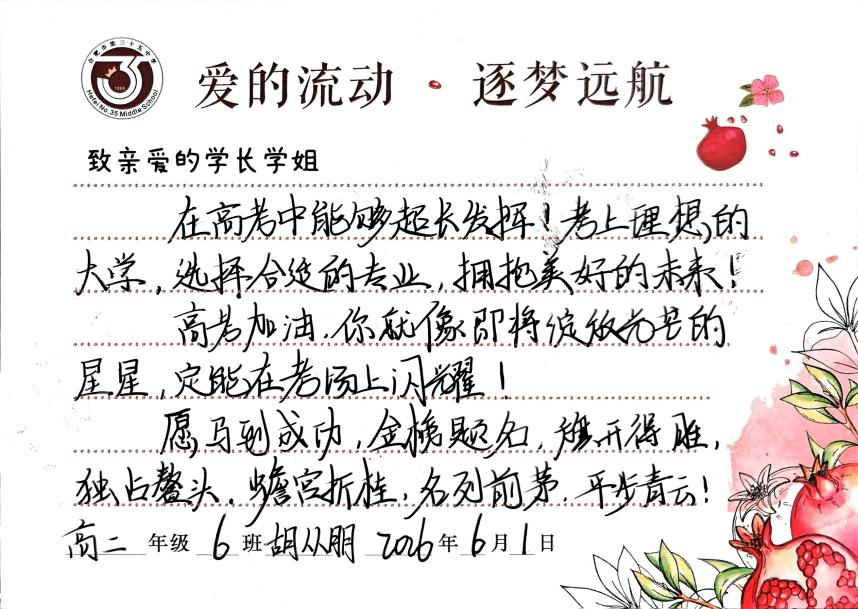 合肥市第三十五中学
1958
Hefei No.35 Middle School
爱的流动·逐梦远航
致亲爱的学长学姐
在高考中能够超长发挥！考上理想的
大学，选择合适的专业，拥抱美好的未来！
高考加油，你就像即将绽放光芒的
星星，定能在考场上闪耀！
愿马到成功，金榜题名，旗开得胜，
独占鳌头，蟾宫折桂，名列前茅，平步青云！
高二 年级 6 班 胡从朋 2026年 6月 1日